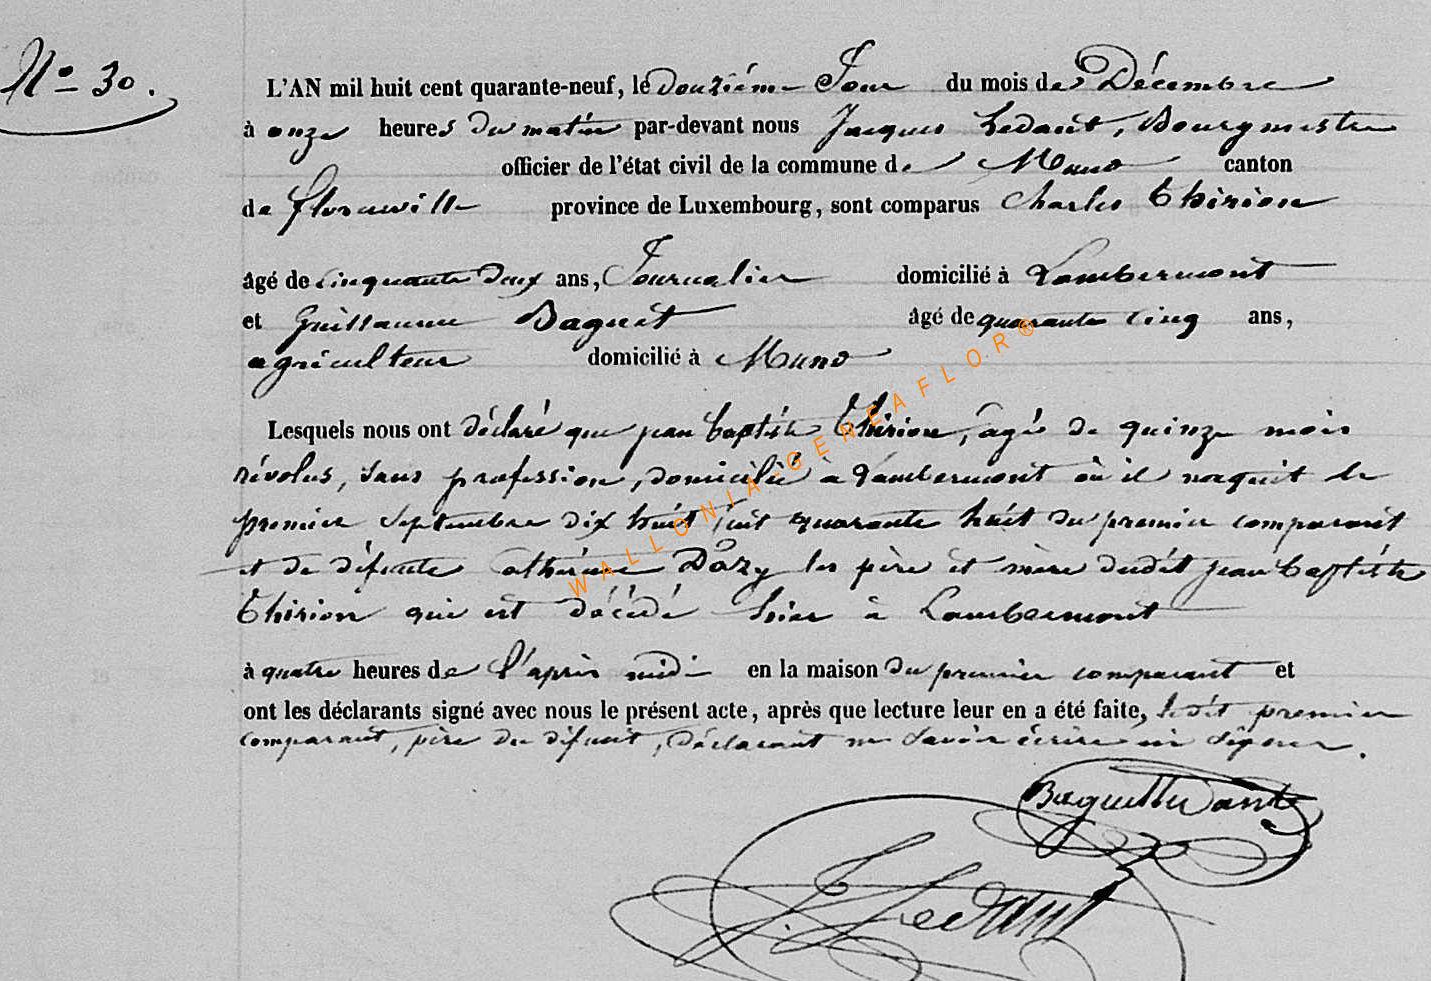 N° 30.
L'AN mil huit cent quarante-neuf, le douzième Jour du mois de Décembre
à onze heures du matin par-devant nous Jacques Ledant, Bourgmestre
officier de l'état civil de la commune de Muno canton
de florenville province de Luxembourg, sont comparus Charles Thirion
âgé de cinquante deux ans, Journalier domicilié à Lambermont
et Guillaume Baguet âgé de quarante cinq ans,
agriculteur domicilié à Muno
Lesquels nous ont déclaré que jean baptiste Thirion, âgé de quinze mois
révolus, sans profession, domicilié à Lambermont où il naquit le
premier septembre dix huit cent quarante huit du premier comparant
et de défunte Dazy les père et mère dudit jean baptiste
Thirion qui est décédé hier à Lambermont
à quatre heures de l'après midi en la maison du premier comparant et
ont les déclarants signé avec nous le présent acte, après que lecture leur en a été faite, ledit premier
comparant, père du défunt, déclarant ne savoir écrire ni signer.
J. Ledant
WALLONIA-GEREAFLOR®